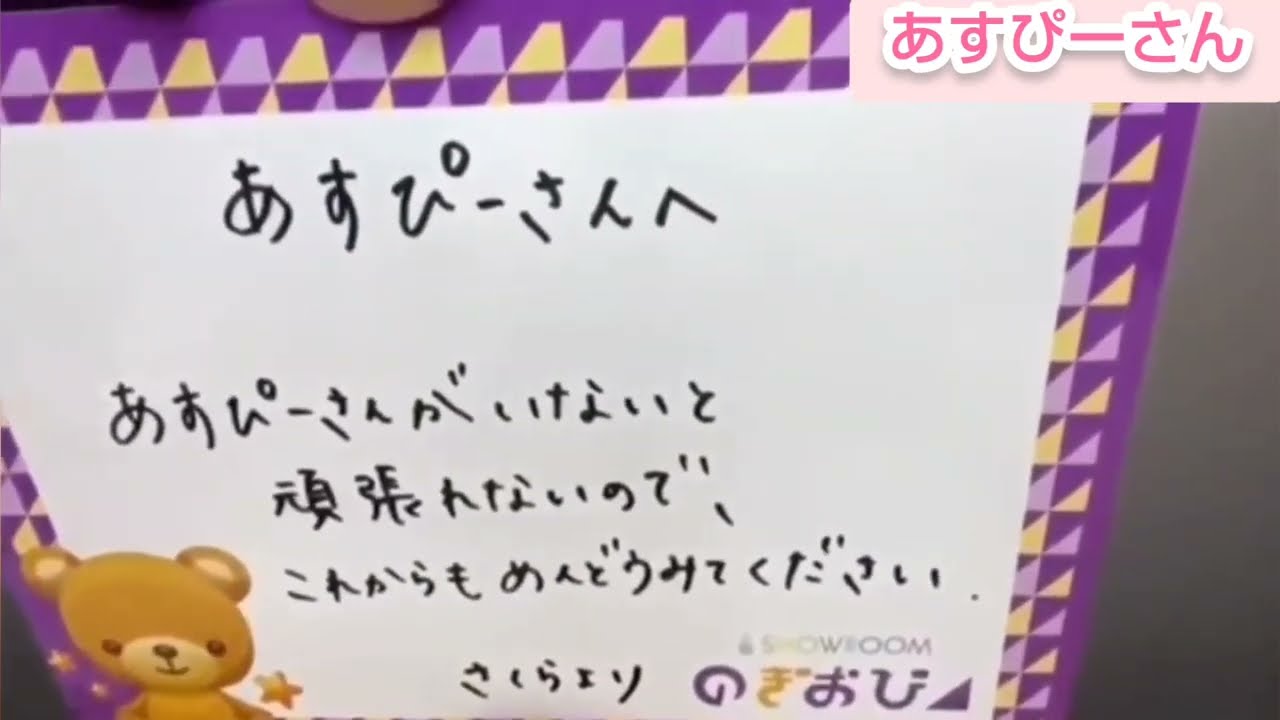 あすぴーさん
あすぴーさんへ
あすぴーさんがいけないと
頑張れないので、
これからもめんどうみてください.
さくらより
SHOWROOM
のぎおび